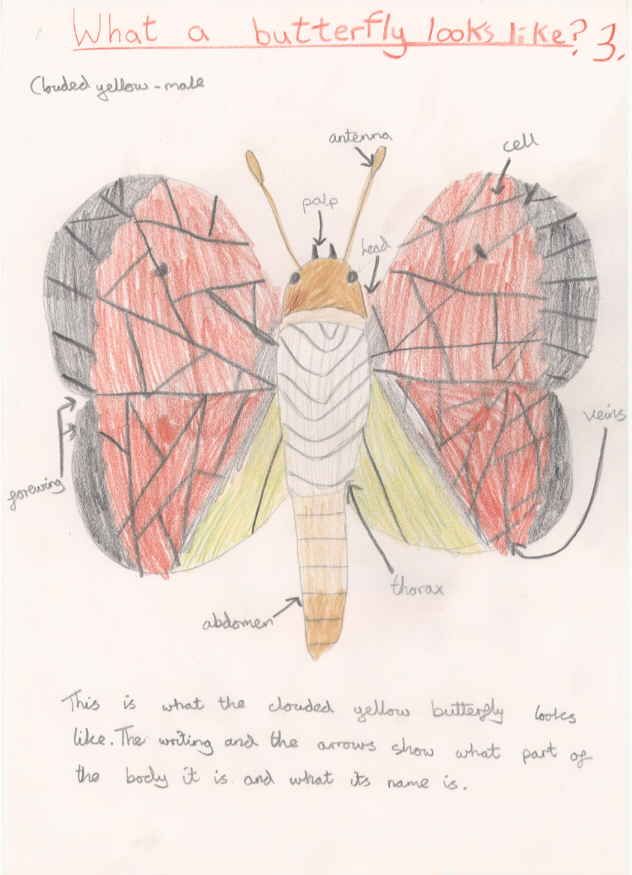 What a butterfly looks like? 3.
Clouded yellow - male
antenna
cell
palp
head
veins
forewing
thorax
abdomen
This is what the clouded yellow butterfly looks
like. The writing and the arrows show what part of
the body it is and what its name is.